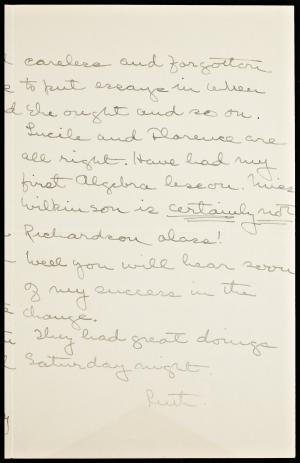 careless and forgotten
to put essays in when
she ought and so on.
Lucile and Florence are
all right. Have had my
first Algebra lesson. Miss
Wilkinson is certainly not
Richardson alass!
Well you will hear soon
of my success in the
change.
They had great doings
Saturday night.
Ruth.